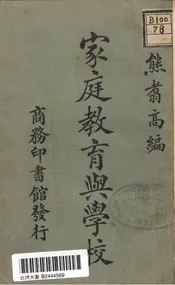 B100
78
熊翥高編
家庭教育與學校
商務印書館發行
北师大图 B2444569